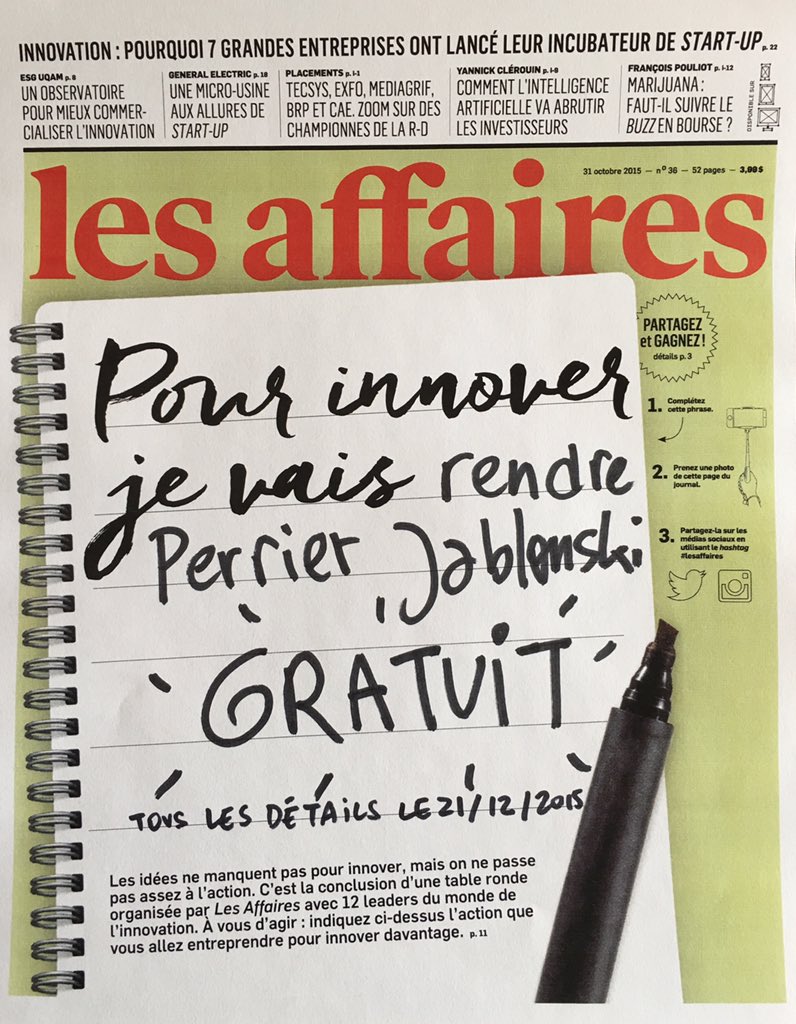 INNOVATION : POURQUOI 7 GRANDES ENTREPRISES ONT LANCÉ LEUR INCUBATEUR DE START-UP p. 22
ESG UQAM p. 8
UN OBSERVATOIRE
POUR MIEUX COMMER-
CIALISER L'INNOVATION
GENERAL ELECTRIC p. 18
UNE MICRO-USINE
AUX ALLURES DE
START-UP
PLACEMENTS p. i-1
TECSYS, EXFO, MEDIAGRIF,
BRP ET CAE. ZOOM SUR DES
CHAMPIONNES DE LA R-D
YANNICK CLÉROUIN p. i-8
COMMENT L'INTELLIGENCE
ARTIFICIELLE VA ABRUTIR
LES INVESTISSEURS
FRANÇOIS POULIOT p. i-12
MARIJUANA :
FAUT-IL SUIVRE LE
BUZZ EN BOURSE ?
DISPONIBLE SUR
31 octobre 2015 — nº 36 — 52 pages — 3,99 $
les affaires
PARTAGEZ
et GAGNEZ !
détails p. 3
1. Complétez
cette phrase.
2. Prenez une photo
de cette page du
journal.
3. Partagez-la sur les
médias sociaux en
utilisant le hashtag
#lesaffaires
Pour innover
je vais rendre
Perrier Jablonski
GRATUIT
TOUS LES DÉTAILS LE 21/12/2015
Les idées ne manquent pas pour innover, mais on ne passe
pas assez à l'action. C'est la conclusion d'une table ronde
organisée par Les Affaires avec 12 leaders du monde de
l'innovation. À vous d'agir : indiquez ci-dessus l'action que
vous allez entreprendre pour innover davantage. p. 11